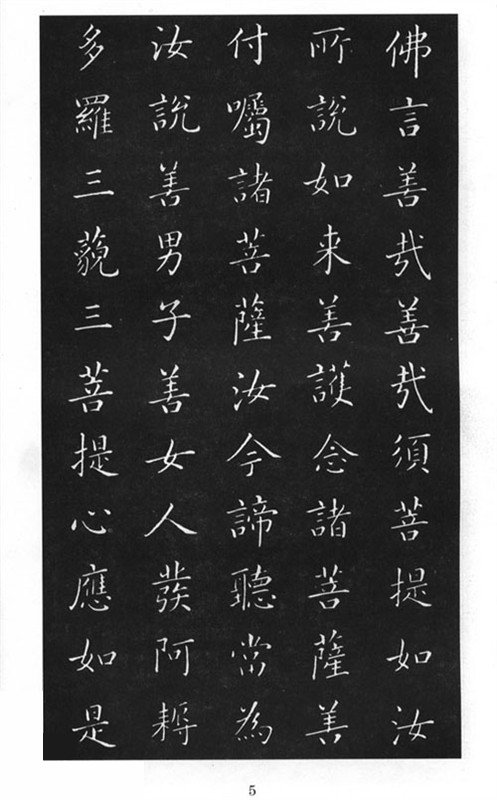 佛言善哉善哉須菩提如汝
所說如来善護念諸菩薩善
付囑諸菩薩汝今諦聽當為
汝說善男子善女人發阿耨
多羅三藐三菩提心應如是
5